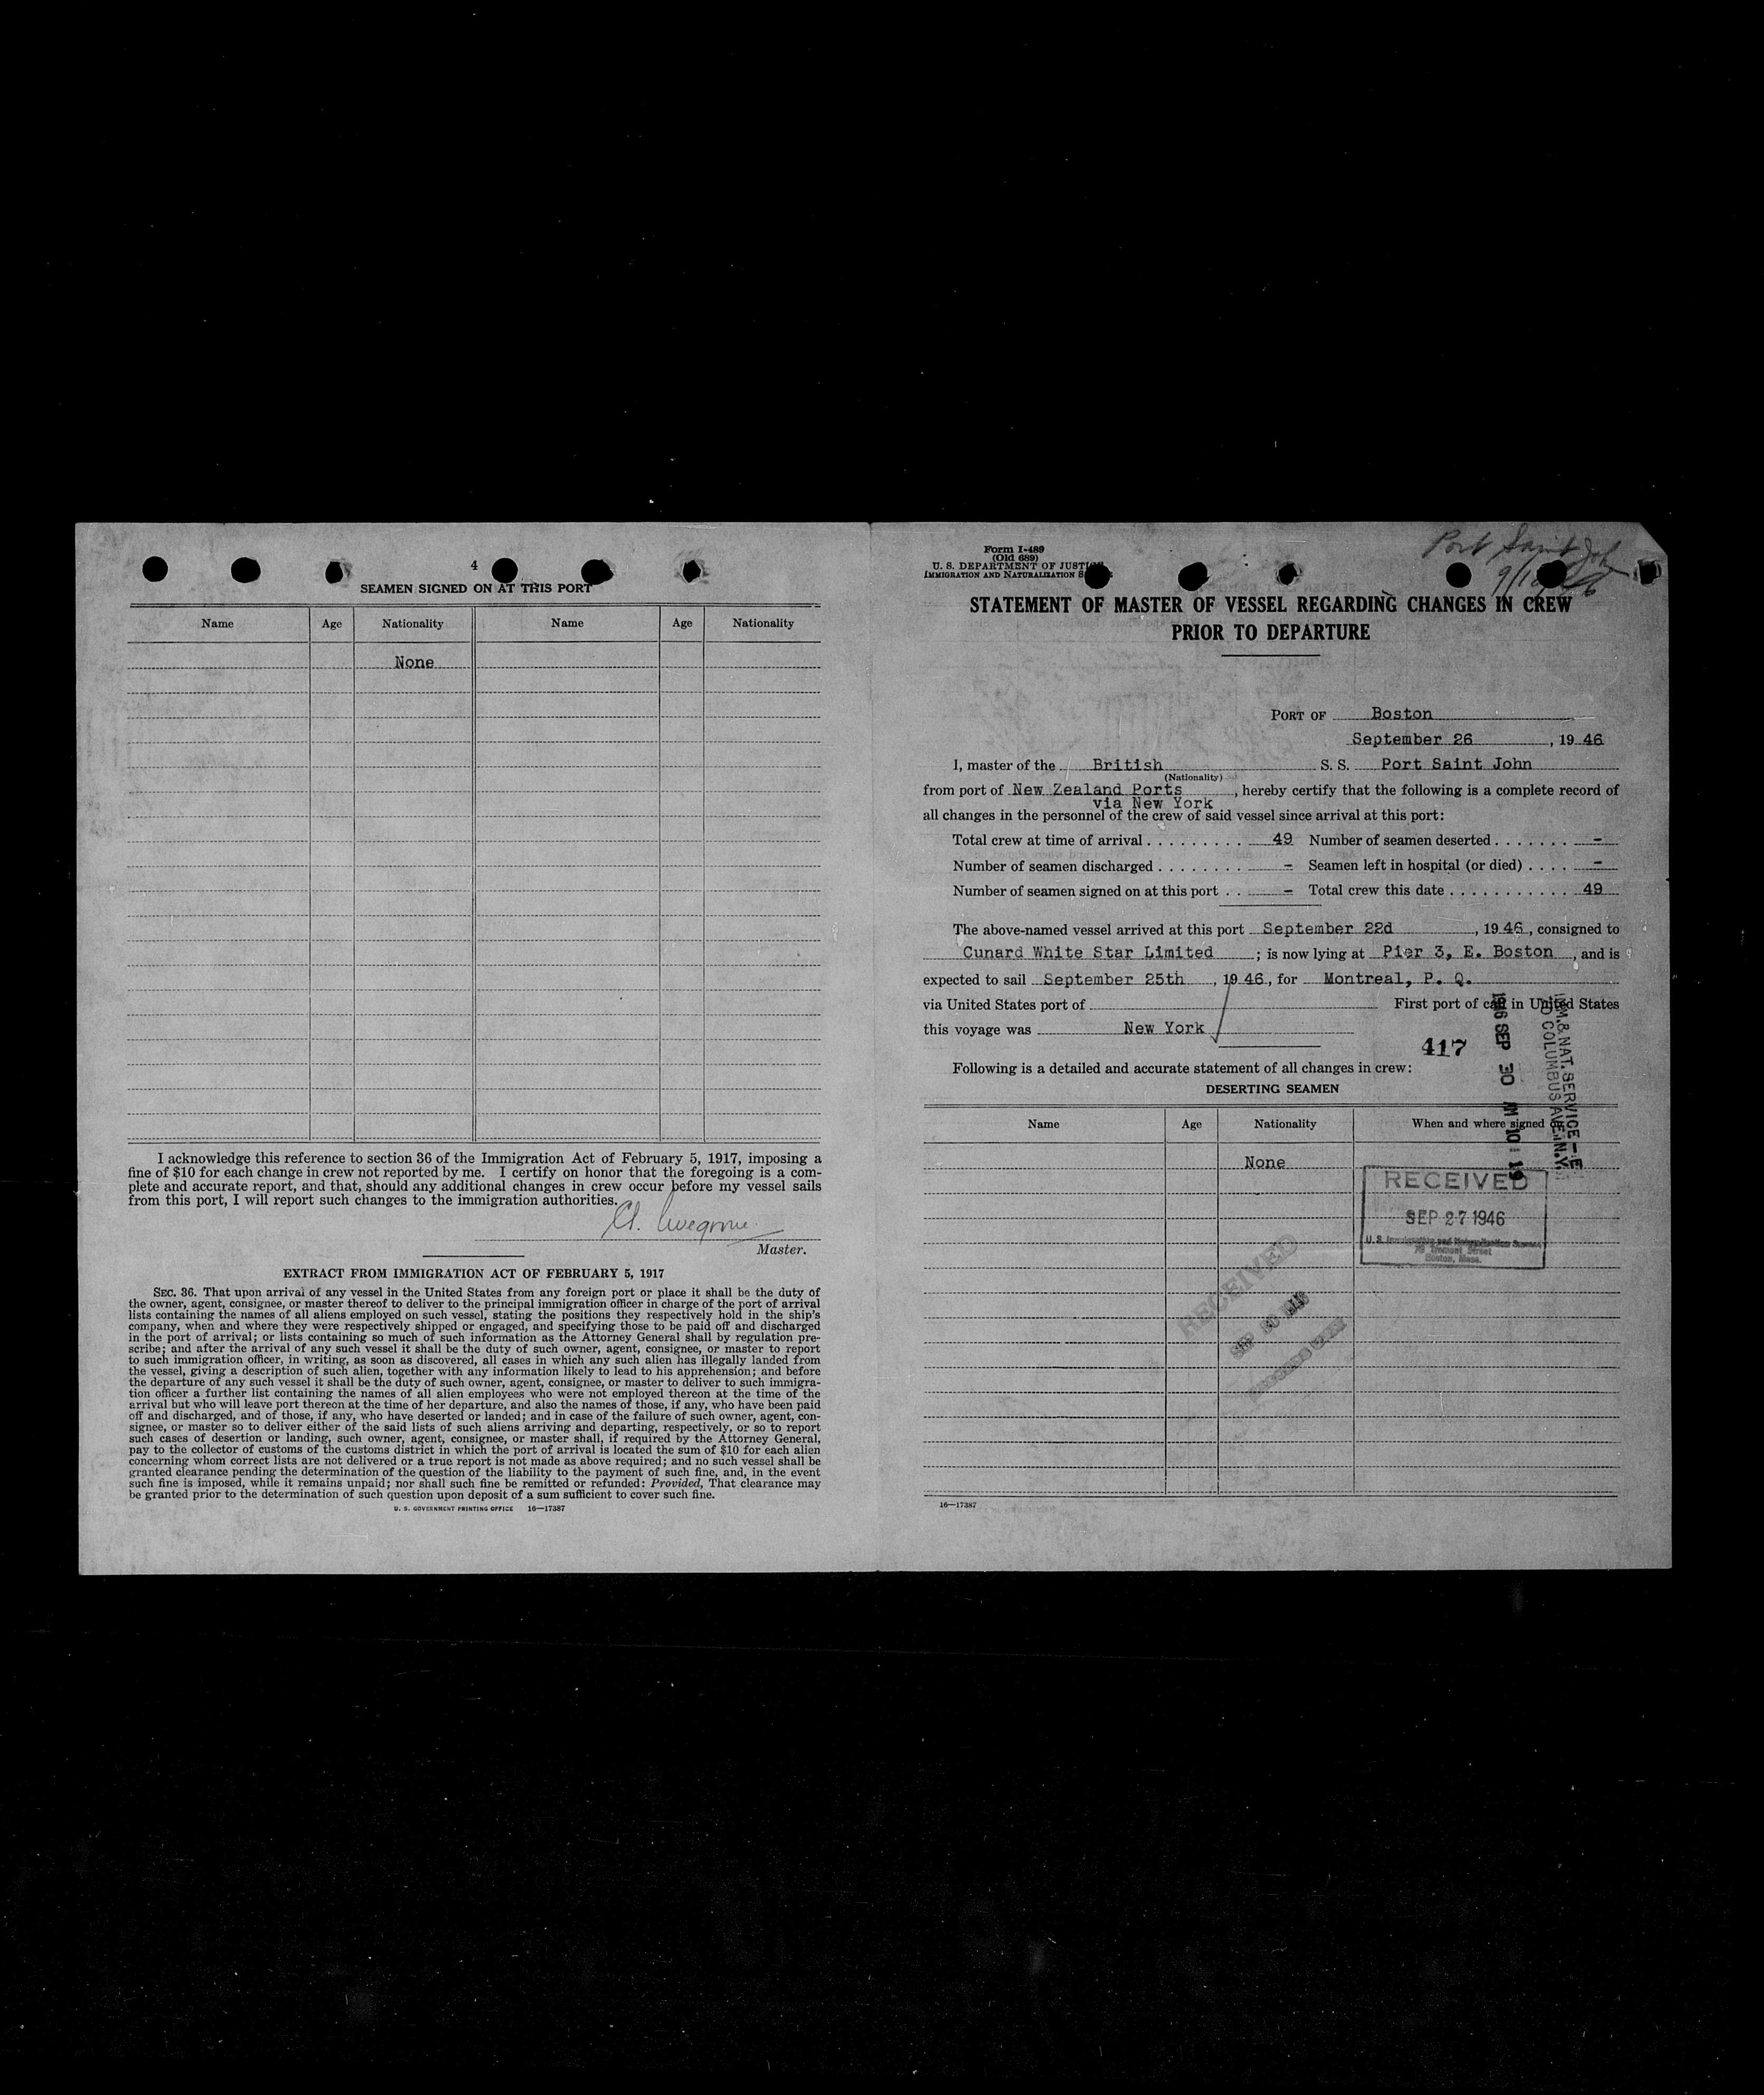 4
SEAMEN SIGNED ON AT THIS PORT
Name Age Nationality Name Age Nationality
None
I acknowledge this reference to section 36 of the Immigration Act of February 5, 1917, imposing a
fine of $10 for each change in crew not reported by me. I certify on honor that the foregoing is a com-
plete and accurate report, and that, should any additional changes in crew occur before my vessel sails
from this port, I will report such changes to the immigration authorities.
Master.
EXTRACT FROM IMMIGRATION ACT OF FEBRUARY 5, 1917
SEC. 36. That upon arrival of any vessel in the United States from any foreign port or place it shall be the duty of
the owner, agent, consignee, or master thereof to deliver to the principal immigration officer in charge of the port of arrival
lists containing the names of all aliens employed on such vessel, stating the positions they respectively hold in the ship's
company, when and where they were respectively shipped or engaged, and specifying those to be paid off and discharged
in the port of arrival; or lists containing so much of such information as the Attorney General shall by regulation pre-
scribe; and after the arrival of any such vessel it shall be the duty of such owner, agent, consignee, or master to report
to such immigration officer, in writing, as soon as discovered, all cases in which any such alien has illegally landed from
the vessel, giving a description of such alien, together with any information likely to lead to his apprehension; and before
the departure of any such vessel it shall be the duty of such owner, agent, consignee, or master to deliver to such immigra-
tion officer a further list containing the names of all alien employees who were not employed thereon at the time of the
arrival but who will leave port thereon at the time of her departure, and also the names of those, if any, who have been paid
off and discharged, and of those, if any, who have deserted or landed; and in case of the failure of such owner, agent, con-
signee, or master so to deliver either of the said lists of such aliens arriving and departing, respectively, or so to report
such cases of desertion or landing, such owner, agent, consignee, or master shall, if required by the Attorney General,
pay to the collector of customs of the customs district in which the port of arrival is located the sum of $10 for each alien
concerning whom correct lists are not delivered or a true report is not made as above required; and no such vessel shall be
granted clearance pending the determination of the question of the liability to the payment of such fine, and, in the event
such fine is imposed, while it remains unpaid; nor shall such fine be remitted or refunded: Provided, That clearance may
be granted prior to the determination of such question upon deposit of a sum sufficient to cover such fine.
U. S. GOVERNMENT PRINTING OFFICE 16—17387
Port Saint Joh
Form I-489
(Old 689)
U. S. DEPARTMENT OF JUSTI
IMMIGRATION AND NATURALIZATION S
STATEMENT OF MASTER OF VESSEL REGARDING CHANGES IN CREW
PRIOR TO DEPARTURE
PORT OF Boston
September 26, 1946
I, master of the British S. S. Port Saint John
(Nationality)
from port of New Zealand Ports, hereby certify that the following is a complete record of
via New York
all changes in the personnel of the crew of said vessel since arrival at this port:
Total crew at time of arrival . . . . . . . . . 49 Number of seamen deserted . . . . . . . -
Number of seamen discharged . . . . . . . . - Seamen left in hospital (or died) . . . . -
Number of seamen signed on at this port . . - Total crew this date . . . . . . . . . . . 49
The above-named vessel arrived at this port September 22d, 1946, consigned to
Cunard White Star Limited; is now lying at Pier 3, E. Boston, and is
expected to sail September 25th, 1946, for Montreal, P. Q.
via United States port of First port of call in United States
this voyage was New York
417
Following is a detailed and accurate statement of all changes in crew:
DESERTING SEAMEN
Name Age Nationality When and where signed on
None
IMM. & NAT. SERVICE
COLUMBUS AVE. N.Y.
1946 SEP 30 AM 10: 19
RECEIVED
SEP 27 1946
U. S. Immigration and Naturalization Service
Tremont Street
Boston, Mass.
RECEIVED
16—17387